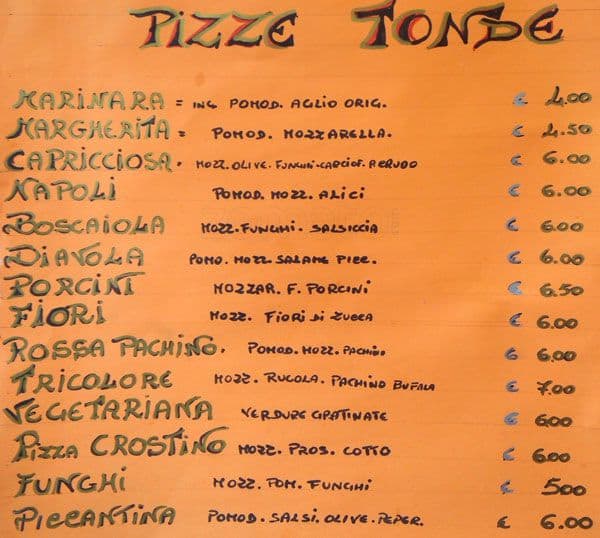 PIZZE TONDE
MARINARA = ING POMOD. AGLIO ORIG. € 4.00
MARGHERITA = POMOD. MOZZARELLA. € 4.50
CAPRICCIOSA. MOZZ. OLIVE. FUNGHI-CARCIOF. P.CRUDO € 6.00
NAPOLI POMOD. MOZZ. ALICI € 6.00
BOSCAIOLA MOZZ. FUNGHI. SALSICCIA € 6.00
DIAVOLA POMO. MOZZ. SALAME PICC. € 6.00
PORCINI MOZZAR. F. PORCINI € 6.50
FIORI MOZZ. FIORI DI ZUCCA € 6.00
ROSSA PACHINO. POMOD. MOZZ. PACHINO € 6.00
TRICOLORE MOZZ. RUCOLA. PACHINO BUFALA € 7.00
VEGETARIANA VERDURE GRATINATE € 6.00
PIZZA CROSTINO MOZZ. PROS. COTTO € 6.00
FUNGHI MOZZ. POM. FUNGHI € 500
PICCANTINA POMOD. SALSI. OLIVE. PEPER. € 6.00